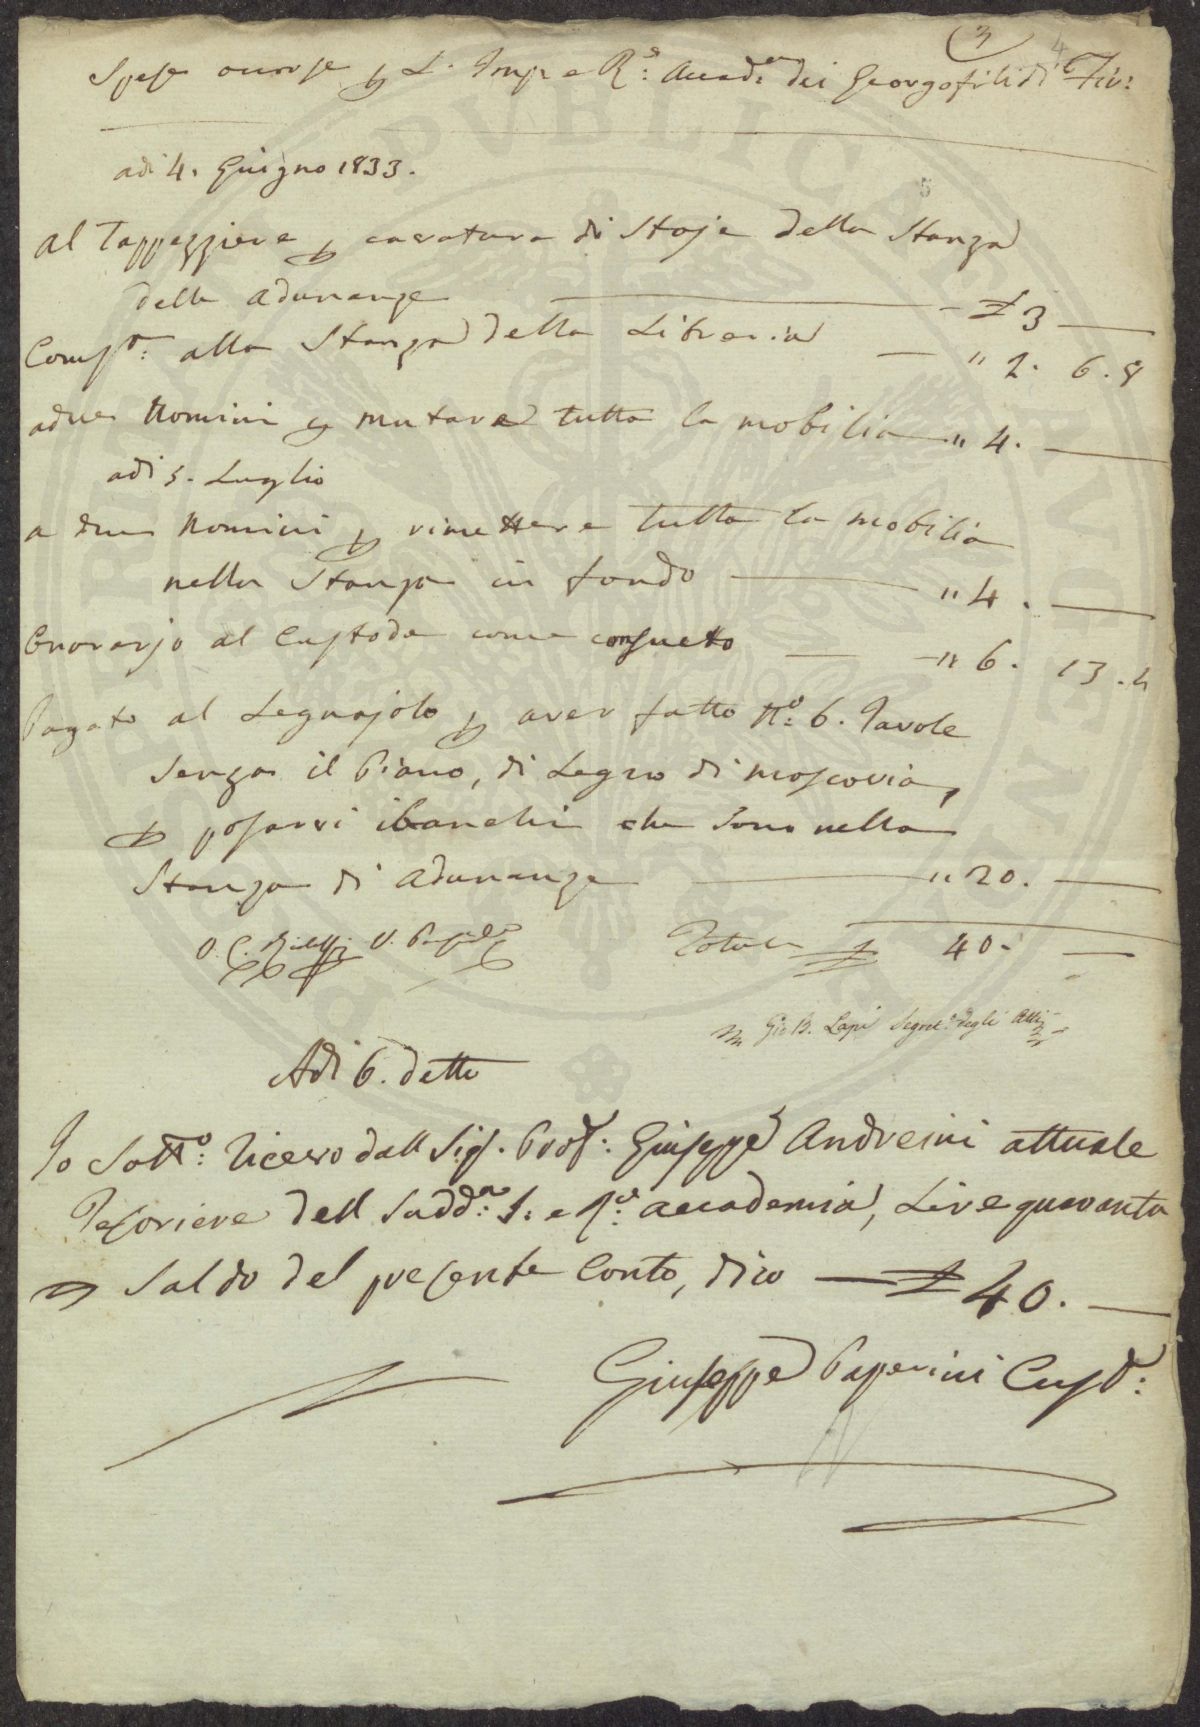 3
4
Spese occorse p L'Imp e R.e Accad.a dei Georgofili di Fir:
adi 4. Giugno 1833.
5
Al Tappezziere p cavatura di Stoje della Stanza
delle Adunanze £ 3
Comp.o: alla Stanza della Libreria " 2. 6. 8
a due Uomini p mutare tutta la mobilia " 4.
adi 5. Luglio
a due Uomini p rimettere tutta la mobilia
nella Stanza in fondo " 4.
Onorario al Custode come consueto " 6. 13. 4
Pagato al Legnajolo p aver fatto N.o 6. Tavole
senza il Piano, di Legno di Moscovia,
p posarvi i banchi che sono nella
Stanza di Adunanze " 20.
V. C. V. Totale £ 40.
Gio B. Lapi Segret.o degli Atti
Adi 6. detto
Io Sott.o: ricevo dall Sig. Prof: Giuseppe Andreini attuale
Tesoriere dell Sudd.a: I. e R.e: Accademia, Lire quaranta
p Saldo del presente Conto, dico £ 40.
Giuseppe Paperini Cust.e:
PVBLICAE